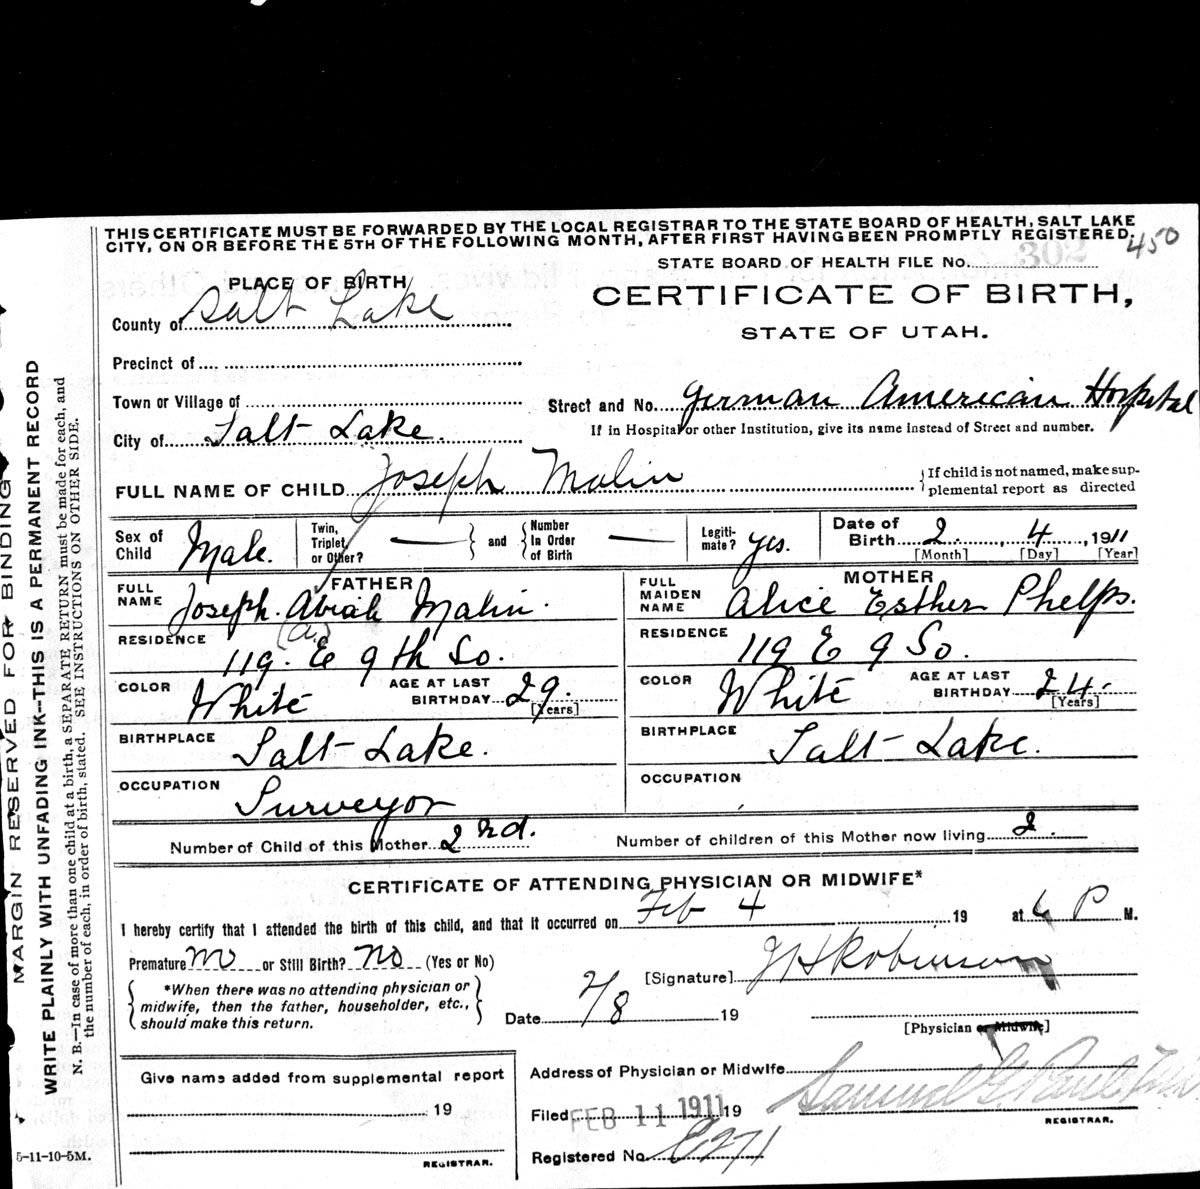 THIS CERTIFICATE MUST BE FORWARDED BY THE LOCAL REGISTRAR TO THE STATE BOARD OF HEALTH, SALT LAKE
CITY, ON OR BEFORE THE 5TH OF THE FOLLOWING MONTH, AFTER FIRST HAVING BEEN PROMPTLY REGISTERED.
450
STATE BOARD OF HEALTH FILE NO. 302
PLACE OF BIRTH
CERTIFICATE OF BIRTH,
County of Salt Lake
STATE OF UTAH.
Precinct of
Town or Village of
Street and No. German American Hospital
If in Hospital or other Institution, give its name instead of Street and number.
City of Salt Lake.
FULL NAME OF CHILD Joseph Malin
If child is not named, make sup-
plemental report as directed
Sex of Child Male.
Twin, Triplet, or Other? —
and
Number In Order of Birth —
Legiti-mate? yes.
Date of Birth 2 , 4 , 1911
[Month] [Day] [Year]
FATHER
FULL NAME Joseph. Abiah Malin.
(a.)
RESIDENCE 119. E 9th So.
COLOR White
AGE AT LAST BIRTHDAY 29.
[Years]
BIRTHPLACE Salt Lake.
OCCUPATION Surveyor
MOTHER
FULL MAIDEN NAME Alice Esther Phelps.
RESIDENCE 119 E 9 So.
COLOR White
AGE AT LAST BIRTHDAY 24.
[Years]
BIRTHPLACE Salt Lake.
OCCUPATION
Number of Child of this Mother 2nd.
Number of children of this Mother now living 2.
CERTIFICATE OF ATTENDING PHYSICIAN OR MIDWIFE*
I hereby certify that I attended the birth of this child, and that it occurred on Feb 4 19 at 6 P M.
Premature no or Still Birth? no (Yes or No)
[Signature] Robinson
*When there was no attending physician or
midwife, then the father, householder, etc.,
should make this return.
Date 2/8 19
[Physician or Midwife]
Give name added from supplemental report
19
REGISTRAR.
Address of Physician or Midwife
Filed FEB 11 1911 19
Samuel G. Paul
REGISTRAR.
Registered No. E271
5-11-10-5M.
MARGIN RESERVED FOR BINDING
WRITE PLAINLY WITH UNFADING INK--THIS IS A PERMANENT RECORD
N. B.—In case of more than one child at a birth, a SEPARATE RETURN must be made for each, and
the number of each, in order of birth, stated. SEE INSTRUCTIONS ON OTHER SIDE.